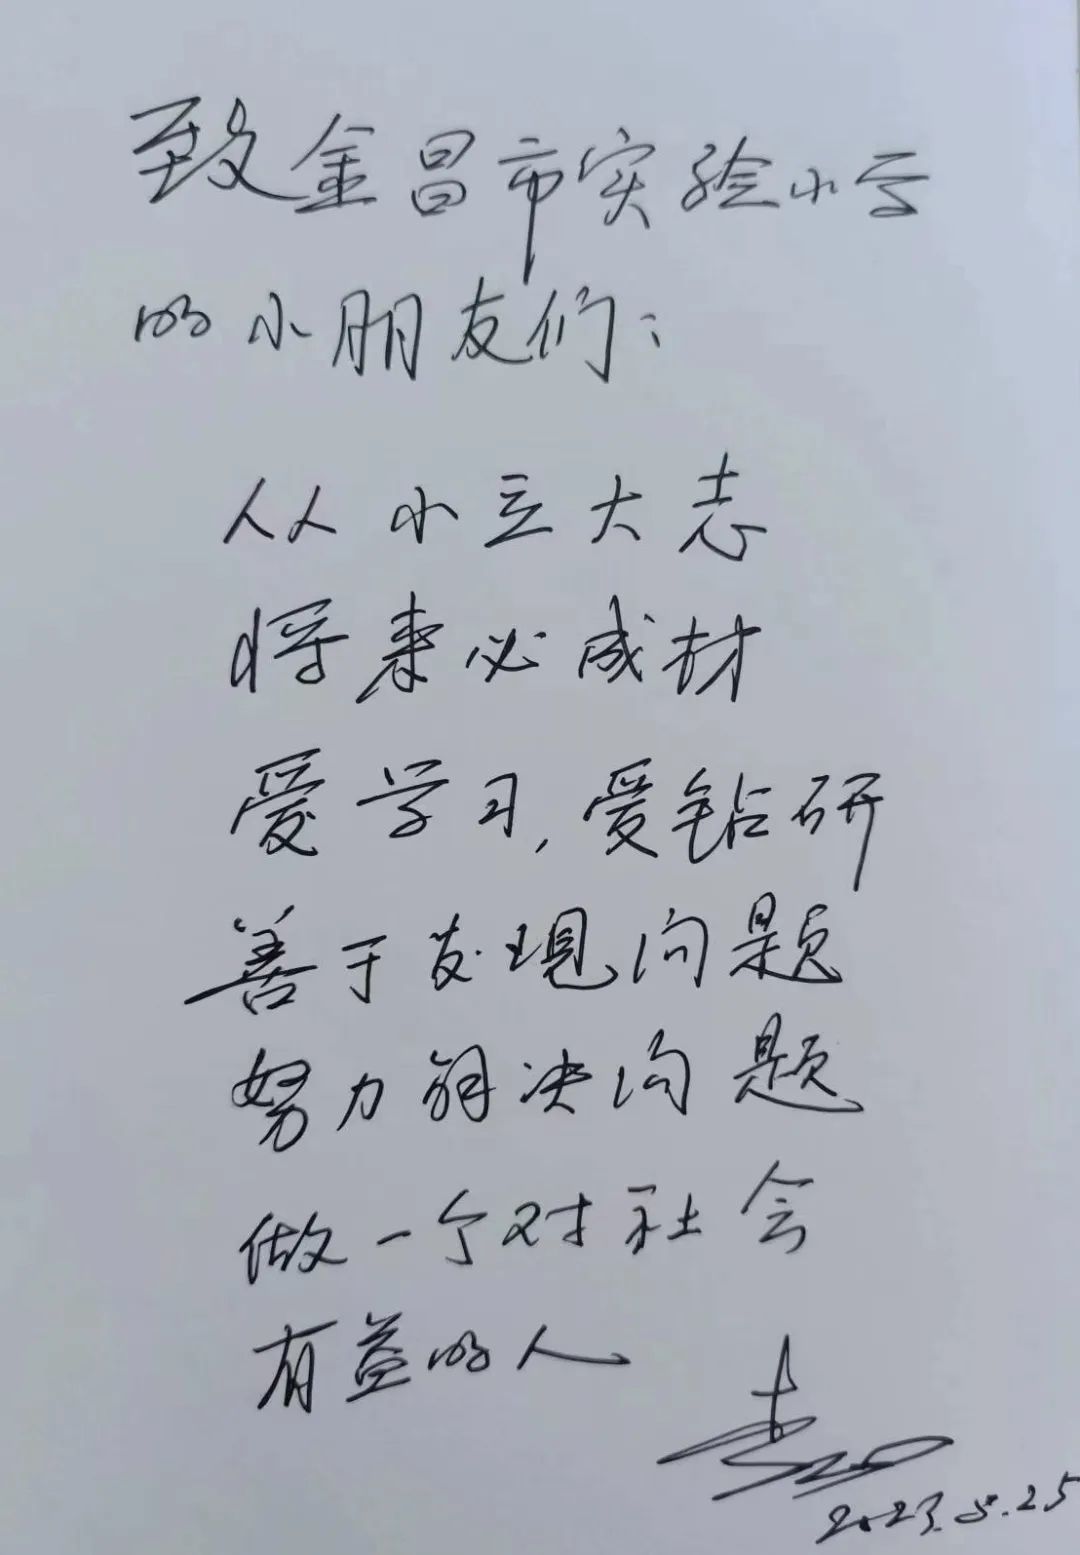 致金昌市实验小学
的小朋友们：
从小立大志
将来必成材
爱学习，爱钻研
善于发现问题
努力解决问题
做一个对社会
有益的人
2023.8.25